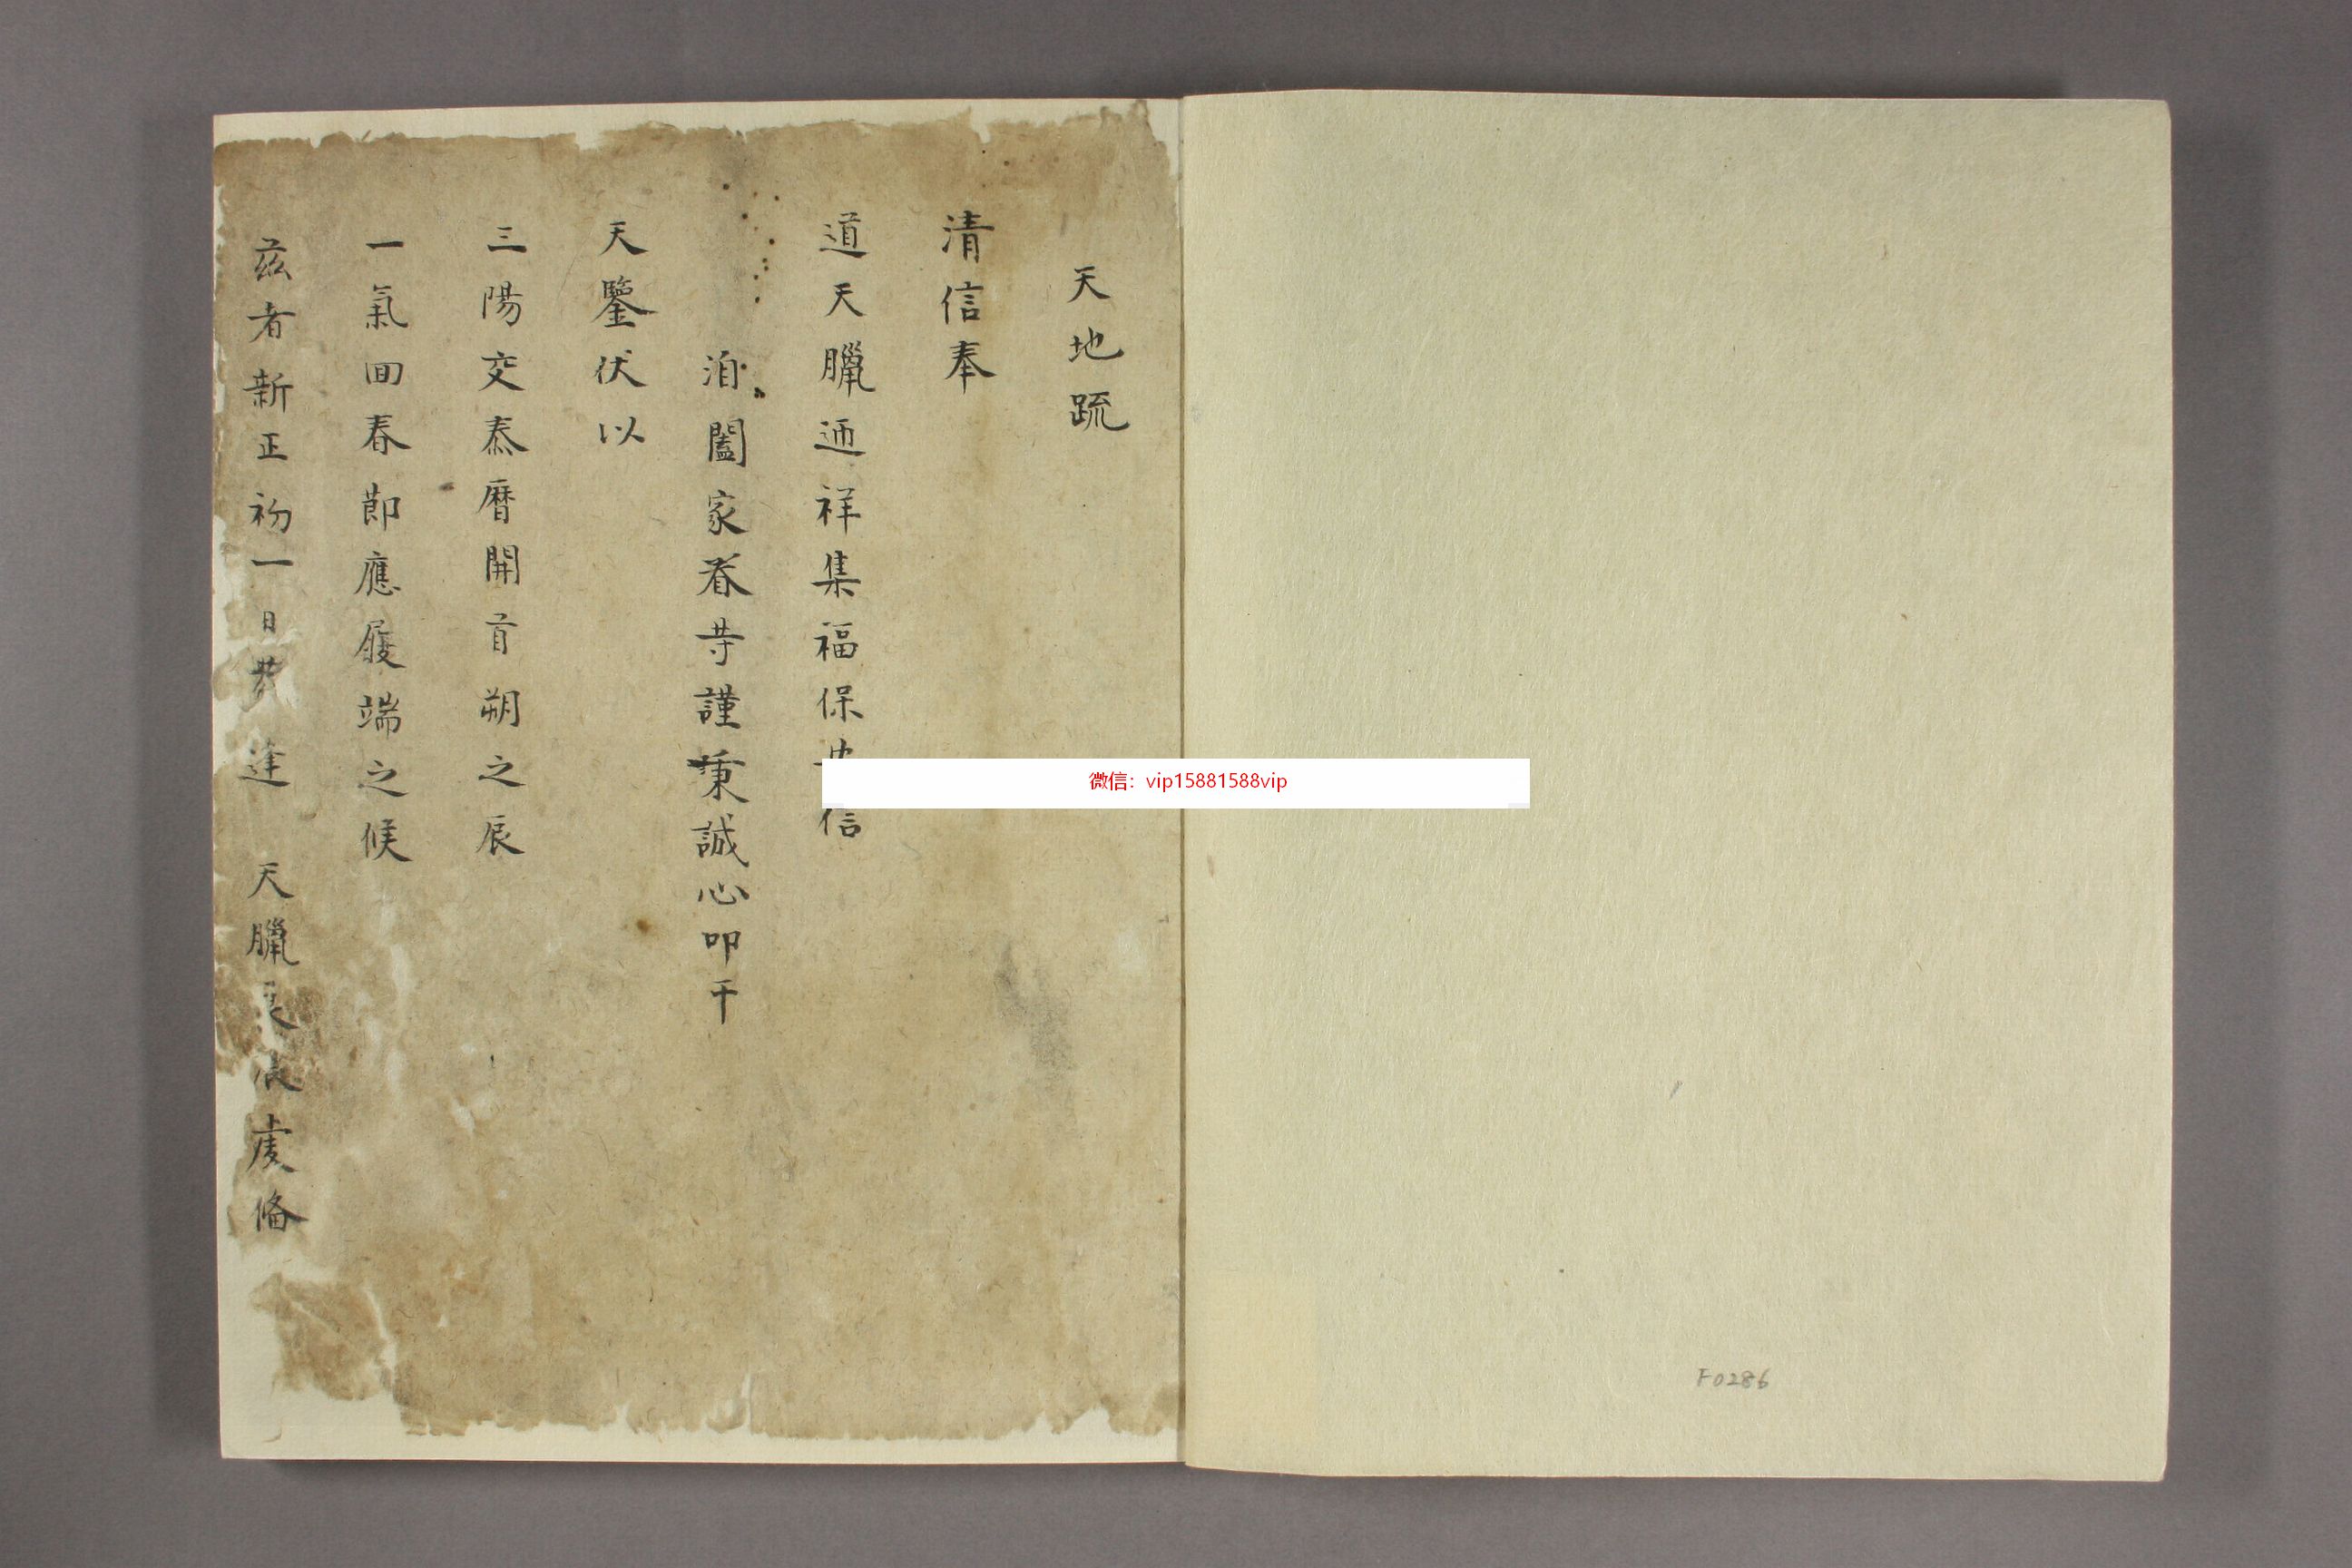 天地疏
清信奉
道天臘迊祥集福保安信
洎闔家眷䒭謹秉誠心叩干
天鑒伏以
三陽交泰曆開首朔之辰
一氣回春節應履端之候
茲者新正初一日恭逢 天臘良辰虔俻
微信：vip15881588vip
F0286